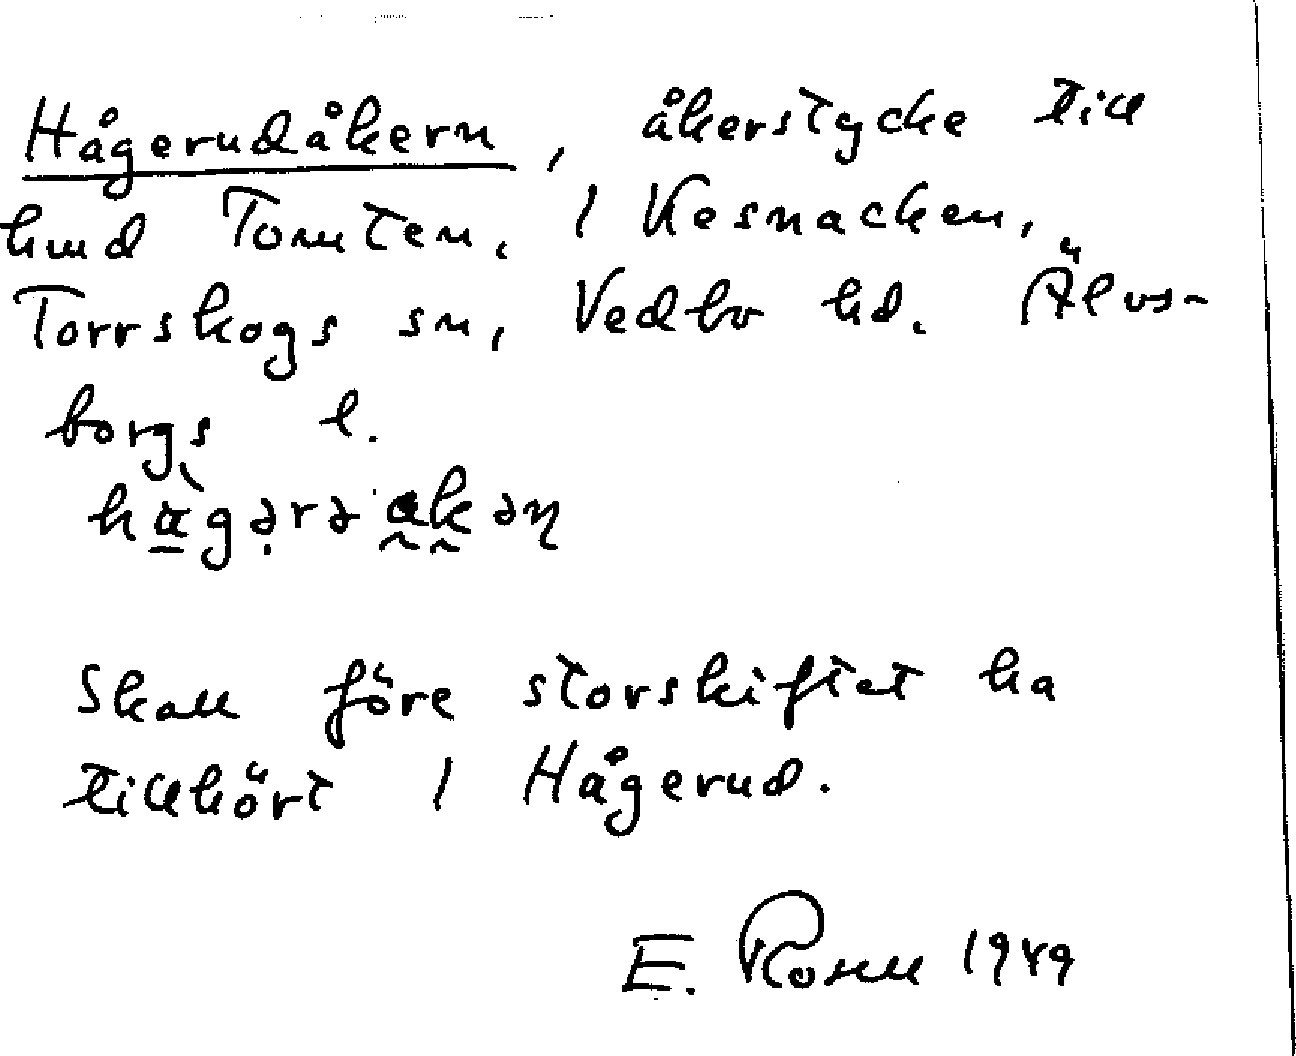 Hågerudåkern, åkerstycke till
hmd Tomten, 1 Kesnacken,
Torrskogs sn, Vedbo hd. Älvs-
borgs l.
Skall före storskiftet ha
tillhört 1 Hågerud.
E. Rosell 1949